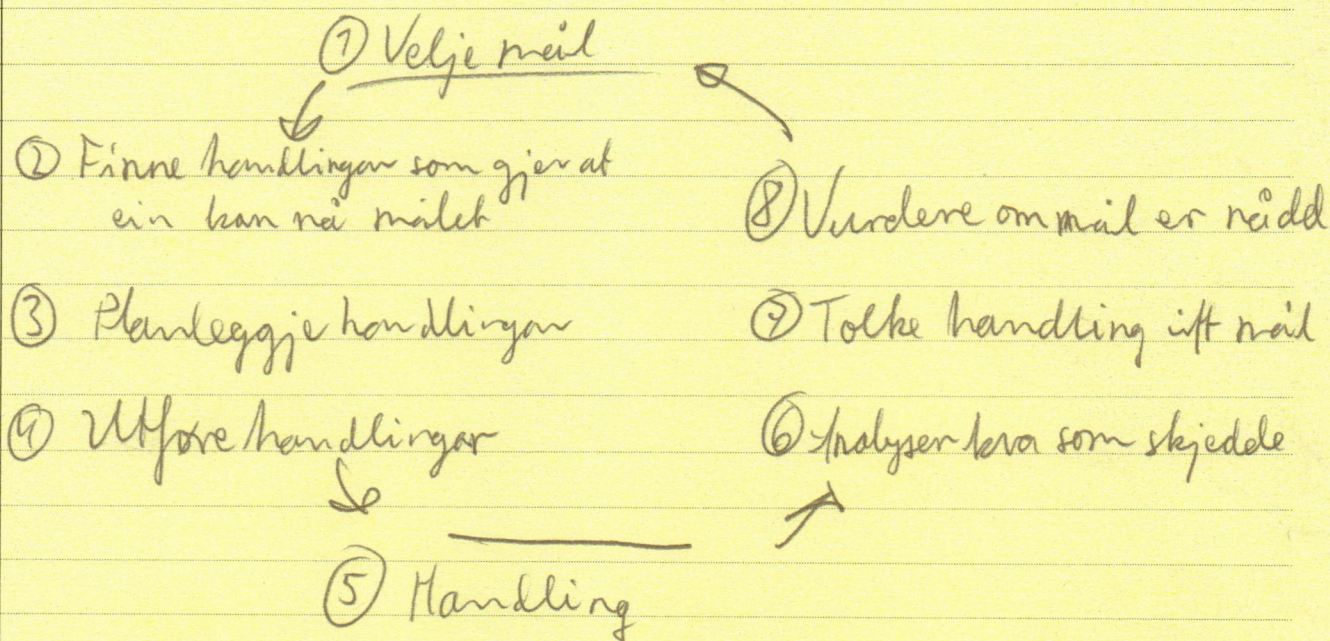 ① Velje mål
② Finne handlingar som gjer at
ein kan nå målet
③ Planleggje handlingar
④ Utføre handlingar
⑤ Handling
⑥ Analyser kva som skjedde
⑦ Tolke handling ift mål
⑧ Vurdere om mål er nådd